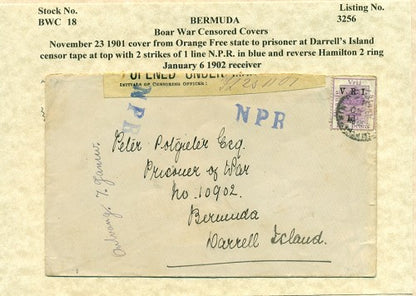 Stock No.
BWC 18
BERMUDA
Listing No.
3256
Boar War Censored Covers
November 23 1901 cover from Orange Free state to prisoner at Darrell's Island
censor tape at top with 2 strikes of 1 line N.P.R. in blue and reverse Hamilton 2 ring
January 6 1902 receiver
OPENED UNDER
INITIALS OF CENSORING OFFICER:
V.R.I.
NPR
NPR
Peter Potgieter Esq.
Prisoner of War
No. 10902.
Bermuda
Darrell Island.